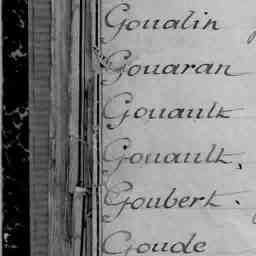 Goualin
Gouaran
Gouault
Gouault,
Goubert.
Goude